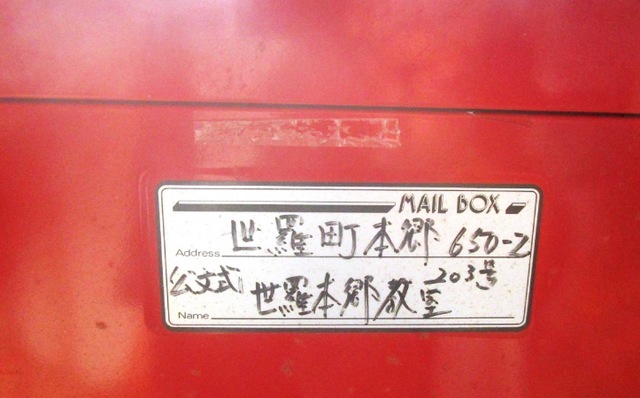 MAIL BOX
Address 世羅町本郷 650-2
203号
公文式 世羅本郷教室
Name